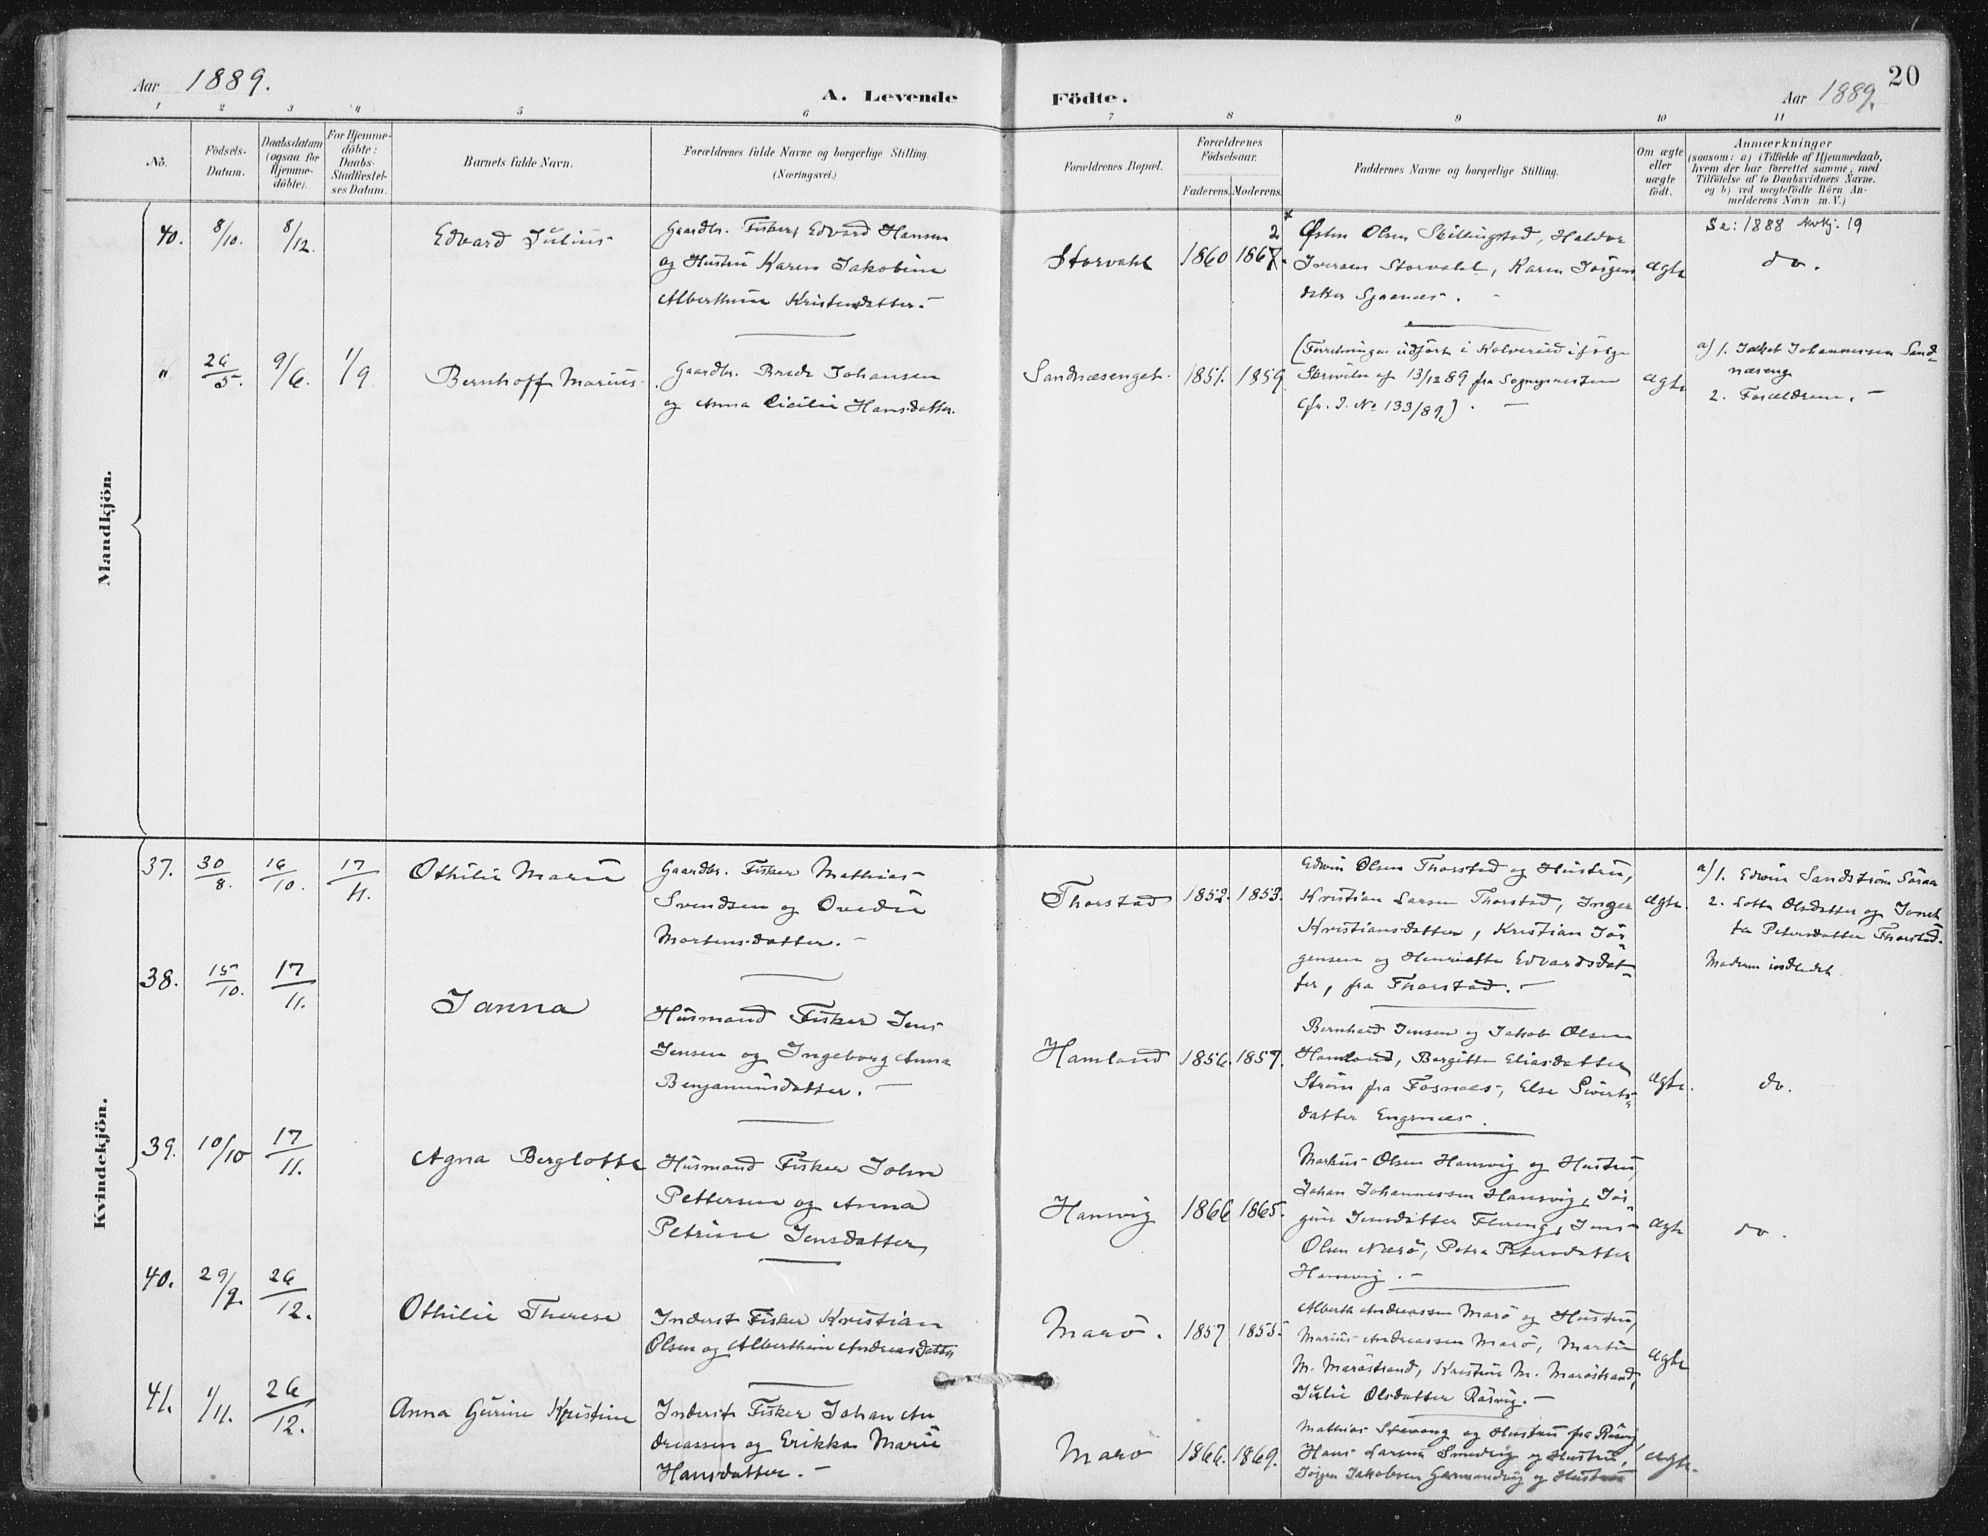 Aar 1889.
A. Levende Födte.
Aar 1889.
20
1 2 3 4 5 6 7 8 9 10 11
No.
Födsels-Datum.
Daabsdatum (ogsaa for Hjemme-döbte).
For Hjemme-döbte: Daabs-Stadfæstel-ses Datum.
Barnets fulde Navn.
Forældrenes fulde Navne og borgerlige Stilling.
(Næringsvei.)
Forældrenes Bopæl.
Forældrenes Födselsaar.
Faderens. Moderens.
Faddernes Navne og borgerlige Stilling.
Om ægte eller uægte födt.
Anmærkninger
(saasom: a) i Tilfælde af Hjemmedaab,
hvem der har forrettet samme, med
Tilföielse af to Daabsvidners Navne,
og b) ved uægtefödte Börn An-
melderens Navn m. V.)
Mandkjön.
40. 8/10. 8/12. Edvard Julius
Gaardbr. Fisker, Edvard Hansen
og Hustru Karen Jakobine
Alberthine Kristensdatter.
Storvahl 1860 1867.
Østen Olsen Skillingstad, Haldor
Iversen Storvahl, Karen Jörgens
datter Sjaanes.
ægte
Se: 1888 Ankj. 19
do.
" 26/5. 9/6. 1/9 Bernhoff Marius
Gaardbr. Brede Johansen
og Anna Cicilie Hansdatter.
Sandnæsenget. 1851. 1859
(Forretningen udført i Kolvereid ifölge
Skrivelse af 13/12 89 fra Sognepresten
(fr. J. No 133/89).
ægte
a) 1. Jakob Johannessen Sand-
næseng
2. Forældrene.
Kvindekjön.
37. 30/8. 16/10. 17/11. Othilie Marie
Gaardbr. Fisker Mathias
Svendsen og Ovedie
Mortensdatter.
Thorstad 1852. 1853.
Edvin Olsen Thorstad og Hustru,
Kristian Larsen Thorstad, Inger
Kristiansdatter, Kristian Jör-
gensen og Henriette Edvardsdat-
ter, fra Thorstad.
ægte.
a) 1. Edvin Sandström
2. Lotte Olsdatter og Jonet-
ta Petersdatter Thorstad.
Moderen indledet.
38. 15/10. 17/11. Janna
Husmand Fisker Jens
Jensen og Ingeborg Anna
Benjaminsdatter.
Hamland 1856. 1857.
Bernhard Jensen og Jakob Olsen
Hamland, Bergitte Eliasdatter
Ström fra Fosnæs, Else Siverts-
datter Engsnæs.
ægte.
do.
39. 10/10 17/11. Agna Berglotte
Husmand Fisker John
Pettersen og Anna
Petrine Jensdatter,
Hansvig 1866 1865.
Markus Olsen Hansvig og Hustru,
Johan Johannessen Hansvig, Jör-
gine Jensdatter Flereng, Jens
Olsen Nærö, Petra Petersdatter
Hansvig.
ægte
do.
40. 29/9. 26/12. Othilie Therese
Inderst Fisker Kristian
Olsen og Alberthine Andreasdatter
Marö. 1857 1855.
Alberth Andreassen Marö og Hustru,
Marius Andreassen Marö, Martin
M. Maröstrand, Kristine M. Maröstrand,
Julie Olsdatter Räsvig.
ægte
41. 1/11. 26/12. Anna Gurine Kristine
Inderst Fisker Johan An
dreassen og Erikka Marie
Hansdatter.
Marö 1866. 1869.
Mathias og Hustru fra
Hans Larsen Smedvig og Hustru,
Jörgen Jakobsen Garmandvig og Hustru
ægte.